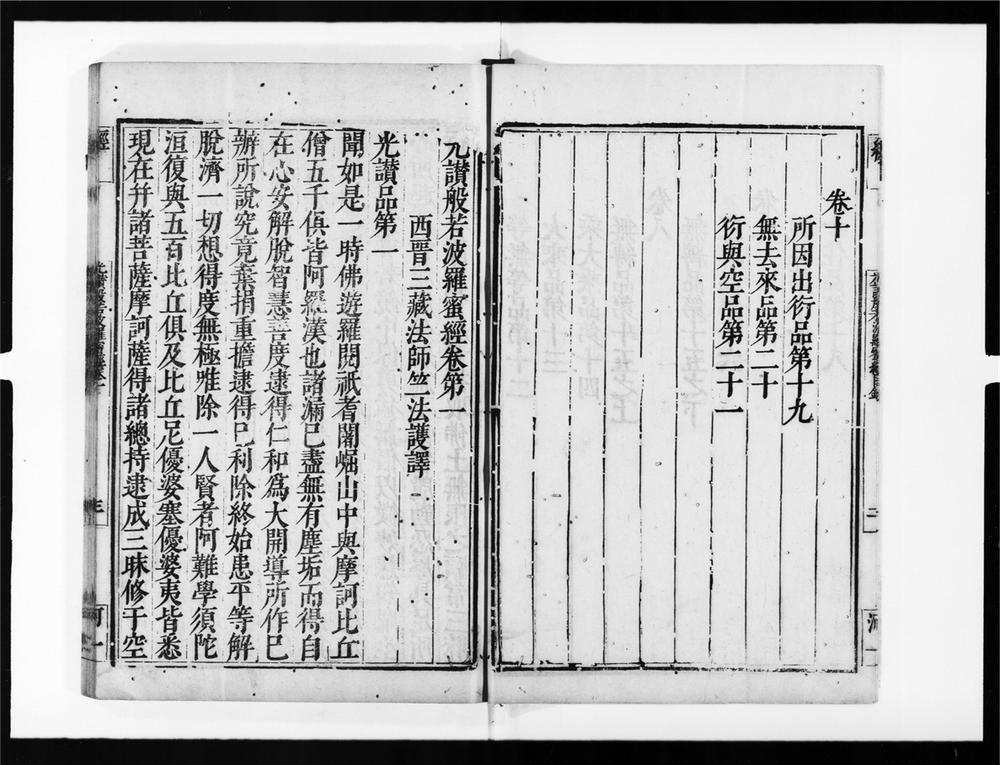 卷十
所因出衍品第十九
無去來品第二十
衍與空品第二十一
光讃般若波羅蜜經卷第一
西晋三藏法師竺法護譯
光讃品第一
聞如是一時佛遊羅閱祇耆闍崛山中與摩訶比丘
僧五千俱皆阿羅漢也諸漏巳盡無有塵垢而得自
在心安解脫智慧善度逮得仁和爲大開導所作巳
辦所說究竟棄捐重擔逮得巳利除終始患平等解
脫濟一切想得度無極唯除一人賢者阿難學須陀
洹復與五百比丘俱及比丘尼優婆塞優婆夷皆悉
現在幷諸菩薩摩訶薩得諸總持逮成三昧修于空
經
三
河一